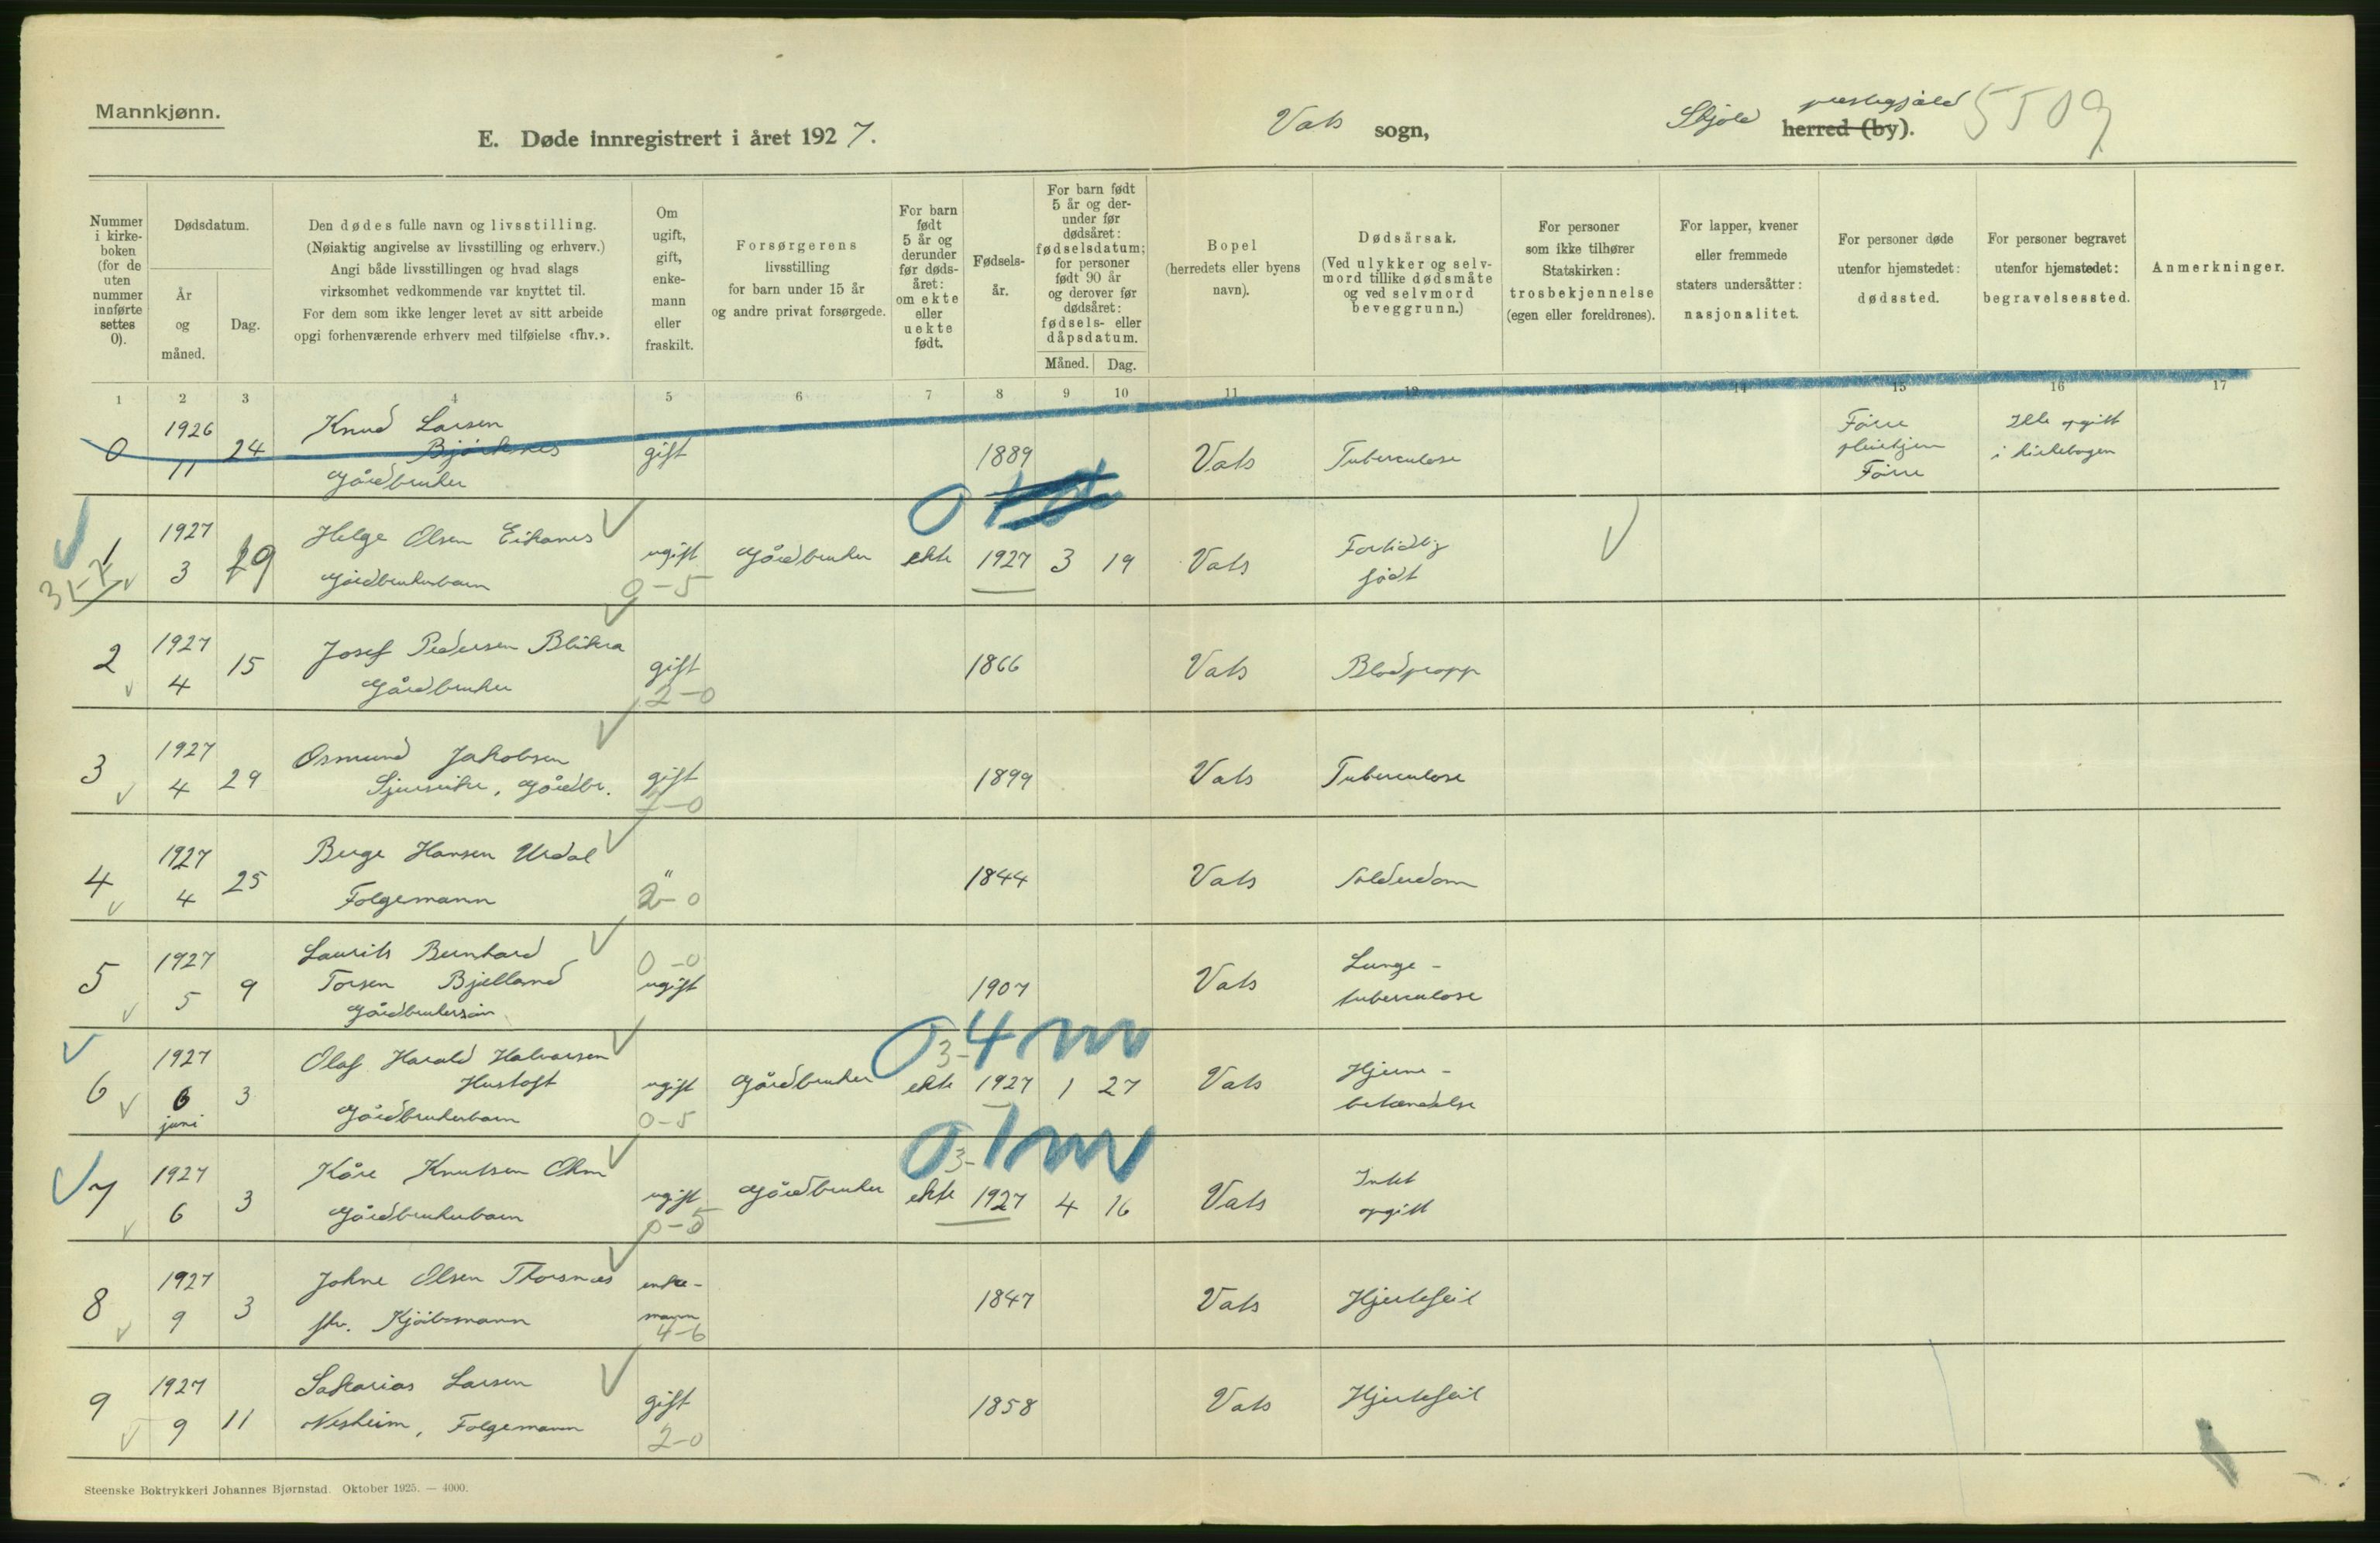 Mannkjønn.
E. Døde innregistrert i året 1927.
Vats sogn,
Skjold prestegjeld herred (by).
5509
Nummer i kirkeboken (for de uten nummer innførte settes 0).
Dødsdatum.
År og måned.
Dag.
Den dødes fulle navn og livsstilling.
(Nøiaktig angivelse av livsstilling og erhverv.)
Angi både livsstillingen og hvad slags
virksomhet vedkommende var knyttet til.
For dem som ikke lenger levet av sitt arbeide
opgi forhenværende erhverv med tilføielse «fhv.».
Om ugift, gift, enkemann eller fraskilt.
Forsørgerens
livsstilling
for barn under 15 år
og andre privat forsørgede.
For barn født 5 år og derunder før dødsåret: om ekte eller uekte født.
Fødselsår.
For barn født 5 år og derunder før dødsåret: fødselsdatum; for personer født 90 år og derover før dødsåret: fødsels- eller dåpsdatum.
Måned.
Dag.
Bopel
(herredets eller byens
navn).
Dødsårsak.
(Ved ulykker og selvmord tillike dødsmåte og ved selvmord beveggrunn.)
For personer
som ikke tilhører
Statskirken:
trosbekjennelse
(egen eller foreldrenes).
For lapper, kvener
eller fremmede
staters undersåtter:
nasjonalitet.
For personer døde
utenfor hjemstedet:
dødssted.
For personer begravet
utenfor hjemstedet:
begravelsessted.
Anmerkninger.
1 2 3 4 5 6 7 8 9 10 11 12 13 14 15 16 17
0 1926 11 24 Knud Larsen
Gårdbruker gift 1889 Vats Tuberculose Førre
Førre Ikke opgitt
i kirkebogen
1 1927 3 19 Helge Olsen Eikanes
Gårdbrukerbarn ugift 0-5 Gårdbruker ekte 1927 3 19 Vats Fortidlig
født
2 1927 4 15 Josef Pedersen Blikra
Gårdbruker gift 2-0 1866 Vats Blodpropp
3 1927 4 29 Osmund Jakobsen
Gårdbr. gift 2-0 1899 Vats Tuberculose
4 1927 4 25 Berge Hansen Urdal
Folgemann " 2-0 1844 Vats Alderdom
5 1927 5 9 Laurits Bernhard
Torsen Bjelland
Gårdbrukersøn 0-0 ugift 1907 Vats Lunge-
tuberculose
6 1927 6 juni 3 Olaf Harald Halvorsen
Hustoft
Gårdbrukerbarn ugift 0-5 Gårdbruker ekte 0 3-4 m 1927 1 27 Vats Hjerne-
betændelse
7 1927 6 3 Kåre Knutsen
Gårdbrukerbarn ugift 0-5 Gårdbruker ekte 0 3-1 m 1927 4 16 Vats Intet
opgitt
8 1927 9 3 Johne Olsen Thorsnæs
fhv. Kjøbmann enke-
mann 4-6 1847 Vats Hjertefeil
9 1927 9 11 Sakarias Larsen
Nesheim, Folgemann gift 2-0 1858 Vats Hjertefeil
Steenske Boktrykkeri Johannes Bjørnstad. Oktober 1925. — 4000.